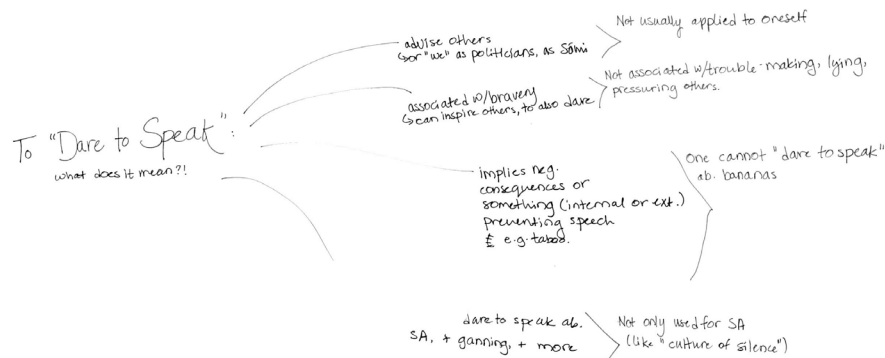 To "Dare to Speak":
what does it mean?!
advise others
↳or "we" as politicians, as Sámi
Not usually applied to oneself
associated w/bravery
↳can inspire others, to also dare
Not associated w/trouble-making, lying,
pressuring others.
implies neg.
consequences or
something (internal or ext.)
preventing speech
£ e.g. taboo.
One cannot "dare to speak"
ab. bananas
dare to speak ab.
SA, + ganning, + more
Not only used for SA
(like "culture of silence")